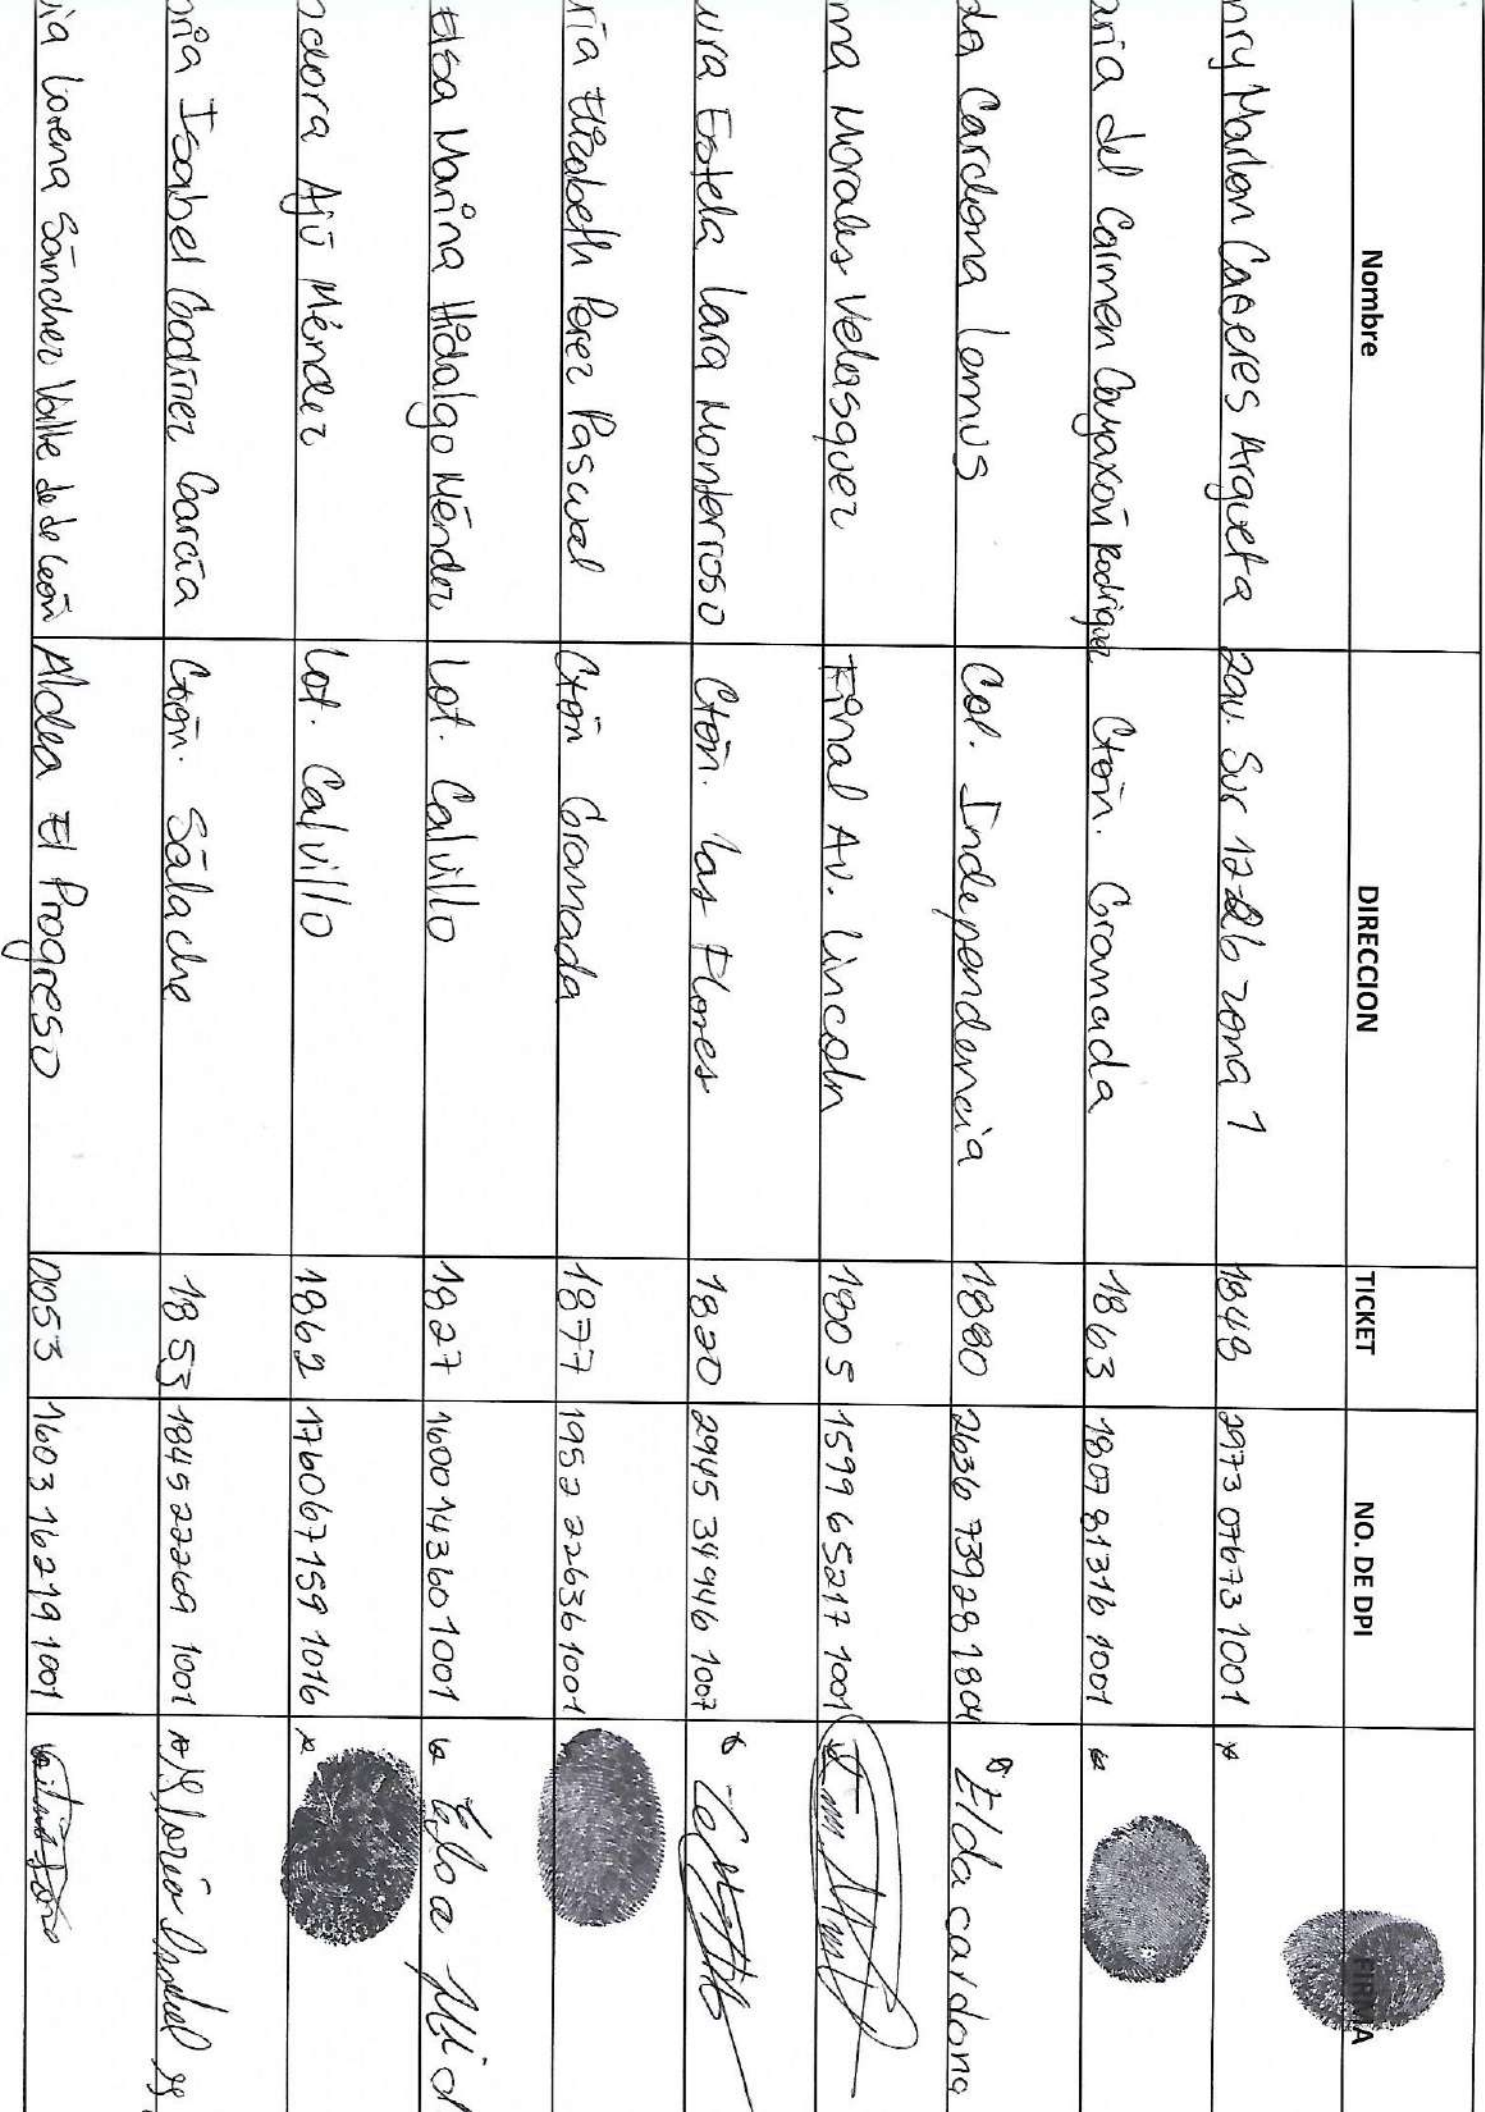 Nombre DIRECCION TICKET NO. DE DPI FIRMA
nry Marlon Caceres Argueta 2av. Sur 12-26 zona 1 1848 2973 07673 1001
aria del Carmen Coyaxón Rodriguez Ctón. Granada 1863 1807 81316 1001
da Cardona Lemus Col. Independencia 1880 2636 73928 1801 Elda cardona
ma Morales Velasquez Final Av. Lincoln 1805 1599 65217 1001
ura Estela Lara Monterroso Ctón. Las Flores 1820 2945 34946 1007
ría Elizabeth Perez Pascual Ctón Granada 1877 1952 22636 1001
Elsa Marina Hidalgo Méndez Lot. Calvillo 1827 1600 14360 1001 Elsa
dora Ajú Méndez Lot. Calvillo 1862 1760 67159 1016
ria Isabel Godínez García Ctón. Sálache 1853 1845 22269 1001
ia Lorena Sánchez Valle de de León Aldea El Progreso 0053 1603 16219 1001